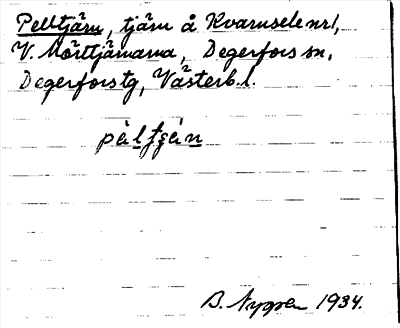 Pelltjärn, tjärn å Kvarnsele nr1,
V. Mörttjärnarna, Degerfors sn,
Degerfors tg, Västerb. l.
B. Nygren 1934.